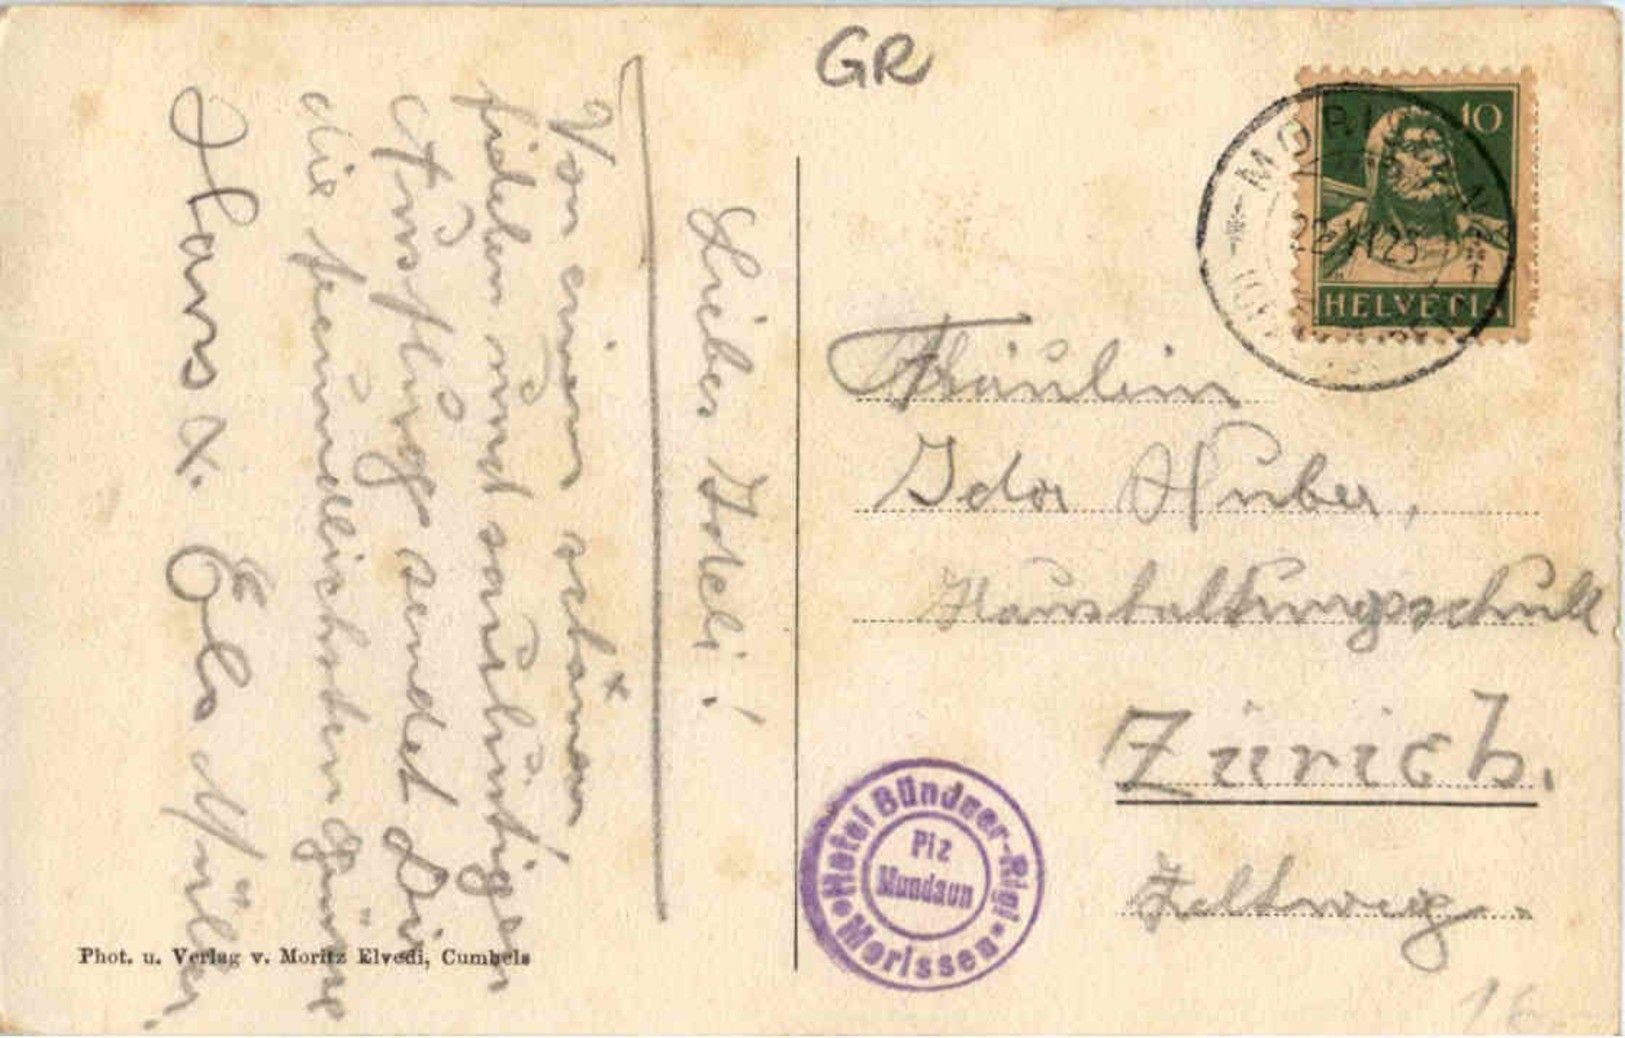 GR
Liebes Ideli!
Von einem schönen
fidelen und saulustigen
Ausflug sendet Dir
die freundlichsten Grüsse
Hans u. Els Müller
Phot. u. Verlag v. Moritz Elvedi, Cumbels
10
HELVETIA
MORISSEN
Fräulein
Ida Huber,
Haushaltungsschule
Zürich.
Zeltweg
Hotel Bündner-Rigi
Piz
Mundaun
Morissen
16